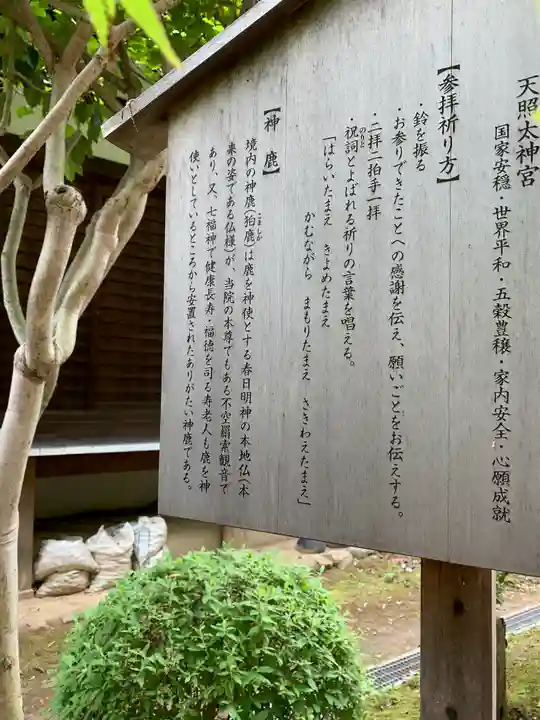 天照太神宮
国家安穏・世界平和・五穀豊穣・家内安全・心願成就
【参拝祈り方】
・鈴を振る
・お参りできたことへの感謝を伝え、願いごとをお伝えする。
・二拝二拍手一拝
・祝詞とよばれる祈りの言葉を唱える。
のと
「はらいたまえ きよめたまえ
かむながら まもりたまえ さきわえたまえ」
【神鹿】
境内の神鹿(狛鹿)は鹿を神使とする春日明神の本地仏(本
こましか
来の姿である仏様)が、当院の本尊でもある不空羂索観音で
あり、又、七福神で健康長寿・福徳を司る寿老人も鹿を神
使いとしているところから安置されたありがたい神鹿である。